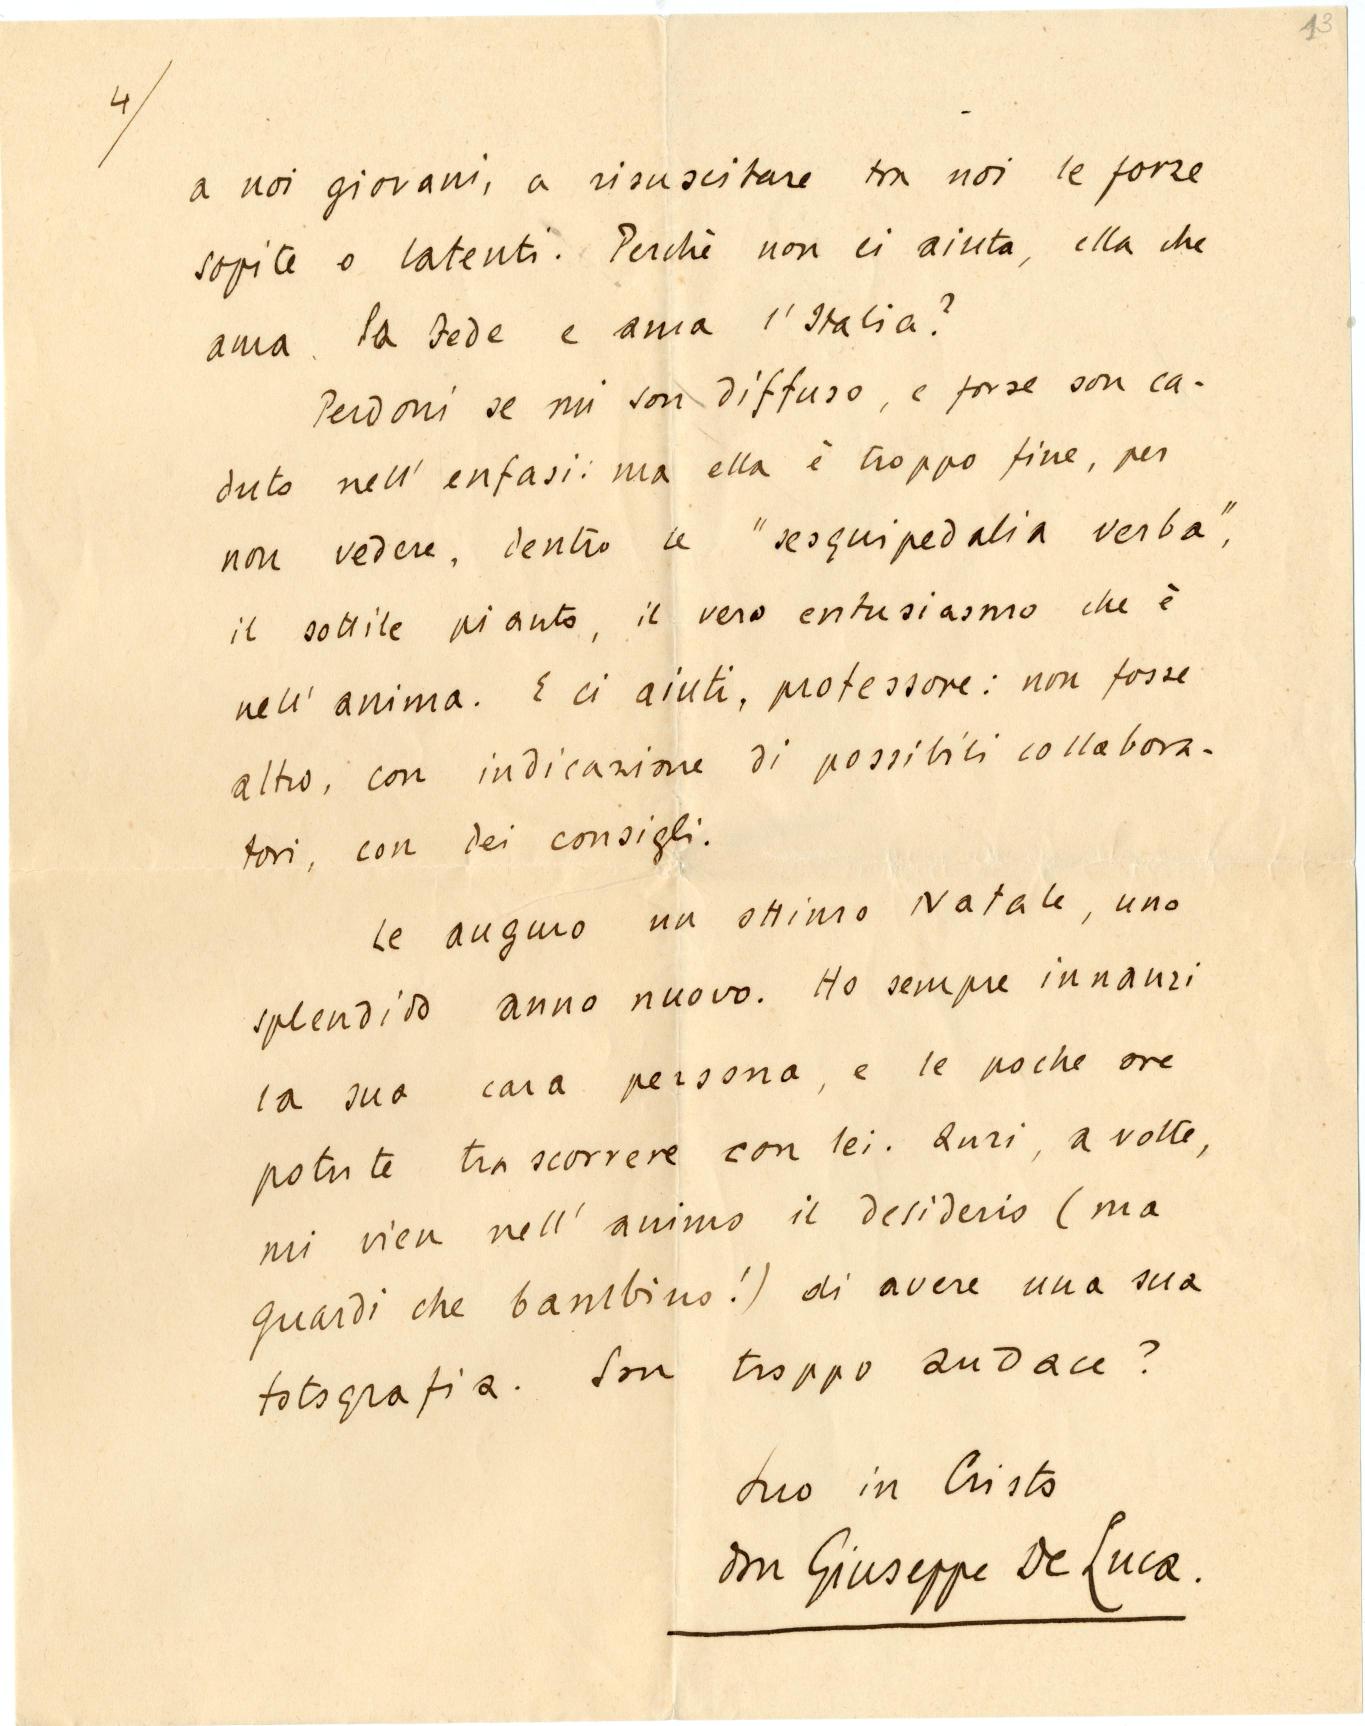 13
4/
a noi giovani, a risuscitare tra noi le forze
sopite o latenti. Perchè non ci aiuta, ella che
ama la Fede e ama l'Italia?
Perdoni se mi son diffuso, e forse son ca-
duto nell'enfasi: ma ella è troppo fine, per
non vedere, dentro le "sesquipedalia verba",
il sottile pianto, il vero entusiasmo che è
nell'anima. E ci aiuti, professore: non fosse
altro, con indicazione di possibili collabora-
tori, con dei consigli.
Le auguro un ottimo Natale, uno
splendido anno nuovo. Ho sempre innanzi
la sua cara persona, e le poche ore
potute trascorrere con lei. Anzi, a volte,
mi vien nell'animo il desiderio (ma
guardi che bambino!) di avere una sua
fotografia. Son troppo audace?
suo in Cristo
don Giuseppe De Luca.